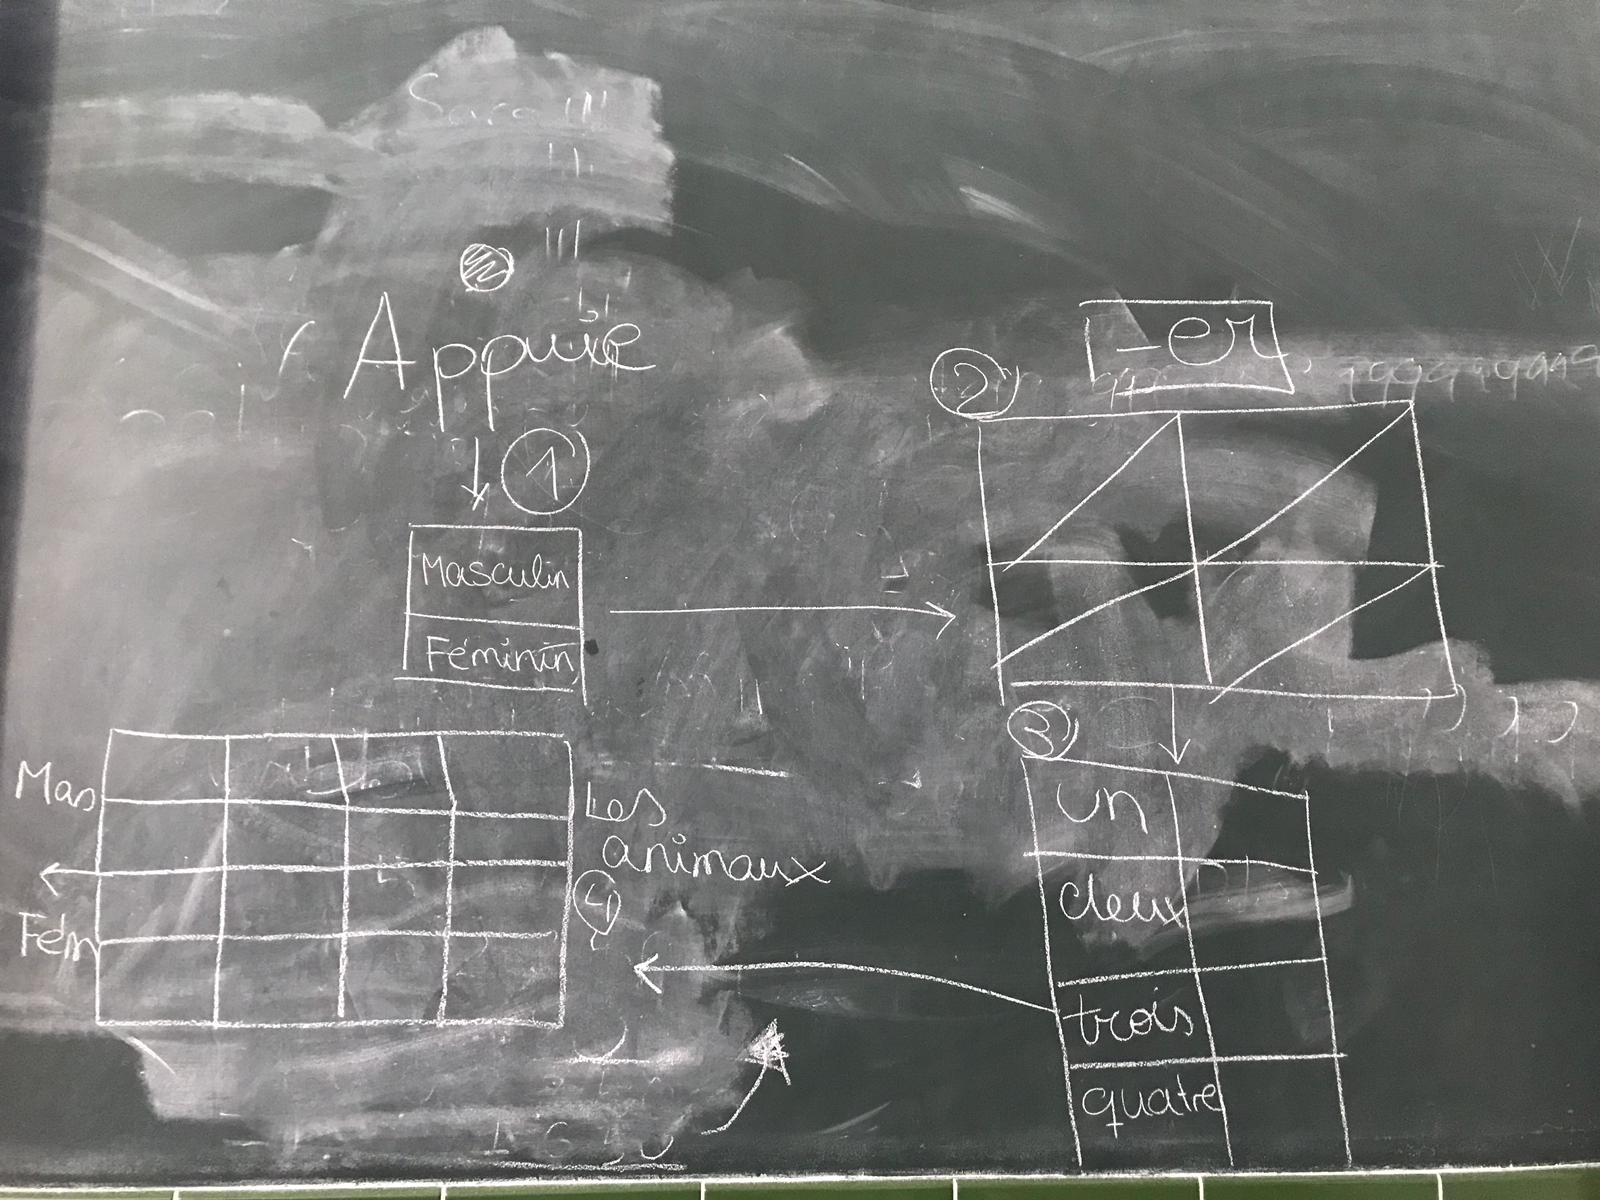 Sara
Appuie
1
Masculin
Féminin
-er
2
3
un
deux
trois
quatre
Mas
Fém
Les
animaux
4